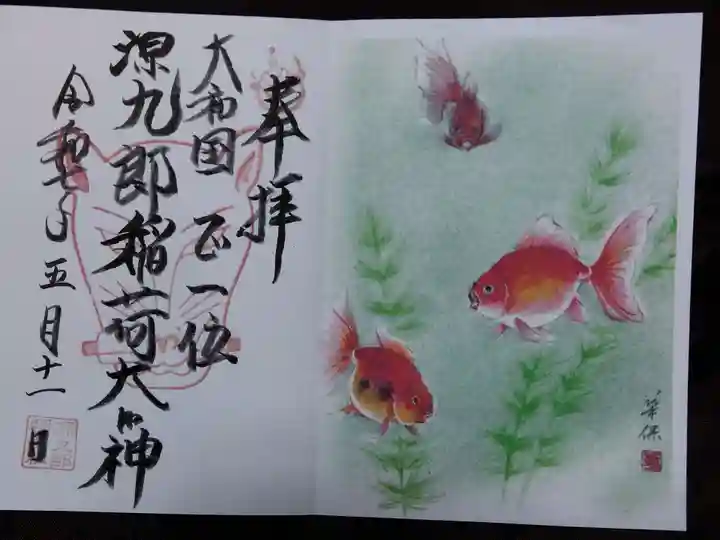 奉拝
大和国 正一位
源九郎稲荷大明神
五月十一日